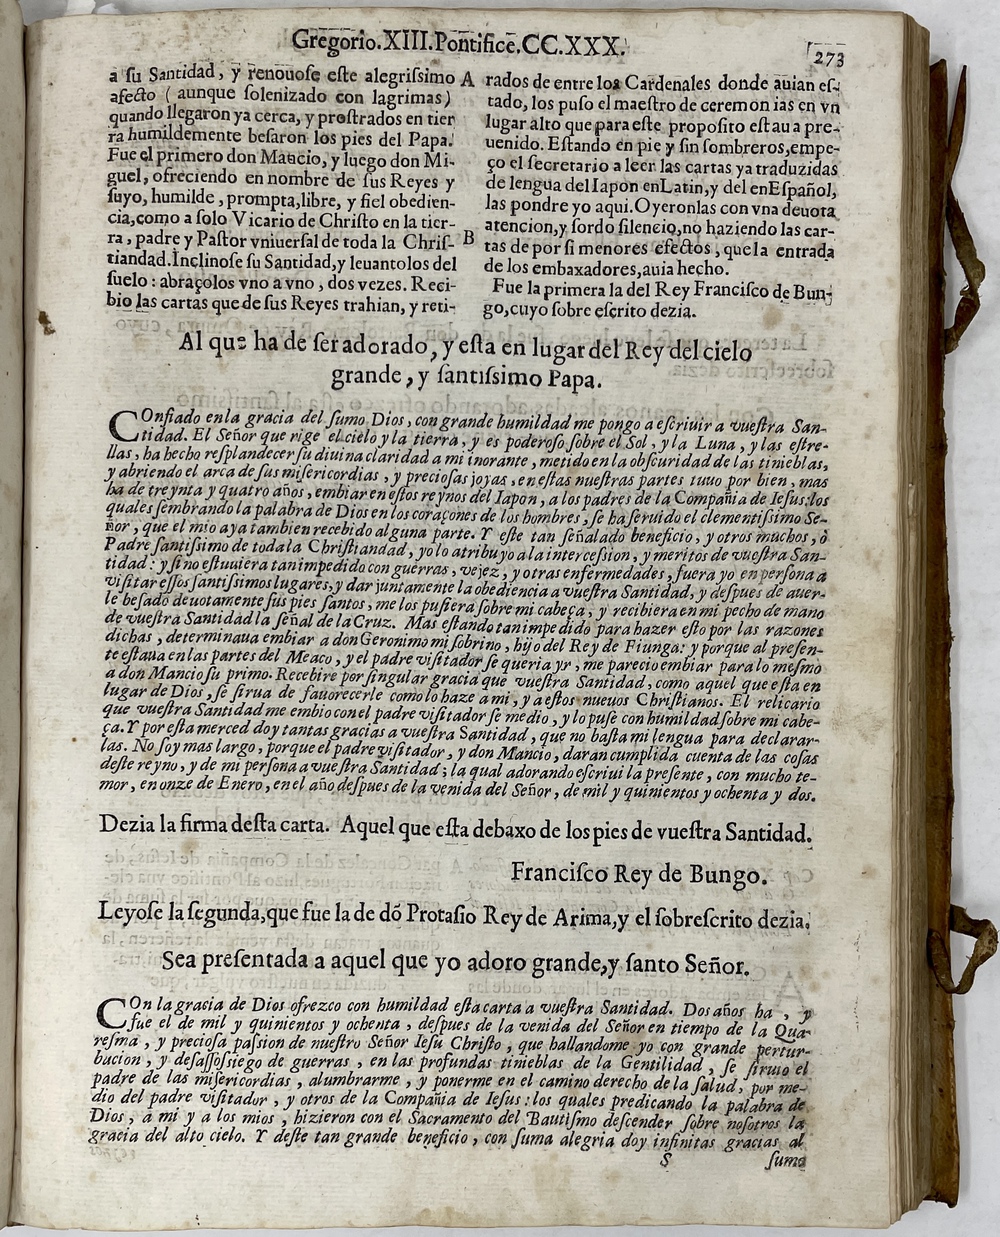 Gregorio.XIII.Pontifice.CC.XXX.
273
a su Santidad, y renouose este alegrissimo
afecto ( aunque solenizado con lagrimas)
quando llegaron ya cerca, y prostrados en tier
ra humildemente besaron los pies del Papa.
Fue el primero don Mancio, y luego don Mi-
guel, ofreciendo en nombre de sus Reyes y
suyo, humilde, prompta, libre, y fiel obedien-
cia, como a solo Vicario de Christo en la tier-
ra, padre y Pastor vniuersal de toda la Chris-
tiandad. Inclinose su Santidad, y leuantolos del
suelo: abraçolos vno a vno, dos vezes. Reci-
bio las cartas que de sus Reyes trahian, y reti-
A
B
rados de entre los Cardenales donde auian es-
tado, los puso el maestro de ceremonias en vn
lugar alto que para este proposito estaua pre-
uenido. Estando en pie y sin sombreros, empe-
ço el secretario a leer las cartas ya traduzidas
de lengua del Iapon en Latin, y del en Español,
las pondre yo aqui. Oyeronlas con vna deuota
atencion, y sordo silencio, no haziendo las car-
tas de por si menores efectos, que la entrada
de los embaxadores, auia hecho.
Fue la primera la del Rey Francisco de Bun-
go, cuyo sobre escrito dezia.
Al que ha de ser adorado, y esta en lugar del Rey del cielo
grande, y santissimo Papa.
COnfiado en la gracia del sumo Dios, con grande humildad me pongo a escriuir a vuestra San-
tidad. El Señor que rige el cielo y la tierra, y es poderoso sobre el Sol, y la Luna, y las estre-
llas, ha hecho resplandecer su diuina claridad a mi inorante, metido en la obscuridad de las tinieblas,
y abriendo el arca de sus misericordias, y preciosas joyas, en estas nuestras partes tuuo por bien, mas
ha de treynta y quatro años, embiar en estos reynos del Iapon, a los padres de la Compañia de Iesus: los
quales sembrando la palabra de Dios en los coraçones de los hombres, se ha seruido el clementissimo Se-
ñor, que el mio aya tambien recebido alguna parte. Y este tan señalado beneficio, y otros muchos, ò
Padre santissimo de toda la Christiandad, yo lo atribuyo a la intercession, y meritos de vuestra San-
tidad: y si no estuuiera tan impedido con guerras, vejez, y otras enfermedades, fuera yo en persona a
visitar essos santissimos lugares, y dar juntamente la obediencia a vuestra Santidad, y despues de auer-
le besado deuotamente sus pies santos, me los pusiera sobre mi cabeça, y recibiera en mi pecho de mano
de vuestra Santidad la señal de la Cruz. Mas estando tan impedido para hazer esto por las razones
dichas, determinaua embiar a don Geronimo mi sobrino, hijo del Rey de Fiunga: y porque al presen-
te estaua en las partes del Meaco, y el padre visitador se queria yr, me parecio embiar para lo mesmo
a don Mancio su primo. Recebire por singular gracia que vuestra Santidad, como aquel que esta en
lugar de Dios, se sirua de fauorecerle como lo haze a mi, y a estos nueuos Christianos. El relicario
que vuestra Santidad me embio con el padre visitador se me dio, y lo puse con humildad sobre mi cabe-
ça. Y por esta merced doy tantas gracias a vuestra Santidad, que no basta mi lengua para declarar-
las. No soy mas largo, porque el padre visitador, y don Mancio, daran cumplida cuenta de las cosas
deste reyno, y de mi persona a vuestra Santidad; la qual adorando escriui la presente, con mucho te-
mor, en onze de Enero, en el año despues de la venida del Señor, de mil y quinientos y ochenta y dos.
Dezia la firma desta carta. Aquel que esta debaxo de los pies de vuestra Santidad.
Francisco Rey de Bungo.
Leyose la segunda, que fue la de dõ Protasio Rey de Arima, y el sobrescrito dezia.
Sea presentada a aquel que yo adoro grande, y santo Señor.
COn la gracia de Dios ofrezco con humildad esta carta a vuestra Santidad. Dos años ha, y
fue el de mil y quinientos y ochenta, despues de la venida del Señor en tiempo de la Qua-
resma, y preciosa passion de nuestro Señor Iesu Christo, que hallandome yo con grande pertur-
bacion, y desassossiego de guerras, en las profundas tinieblas de la Gentilidad, se siruio el
padre de las misericordias, alumbrarme, y ponerme en el camino derecho de la salud, por me-
dio del padre visitador, y otros de la Compañia de Iesus: los quales predicando la palabra de
Dios, à mi y a los mios, hizieron con el Sacramento del Bautismo descender sobre nosotros la
gracia del alto cielo. Y deste tan grande beneficio, con suma alegria doy infinitas gracias al
S
sumo